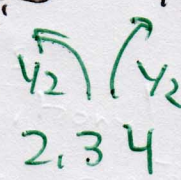 1/2 1/2
2,3 4